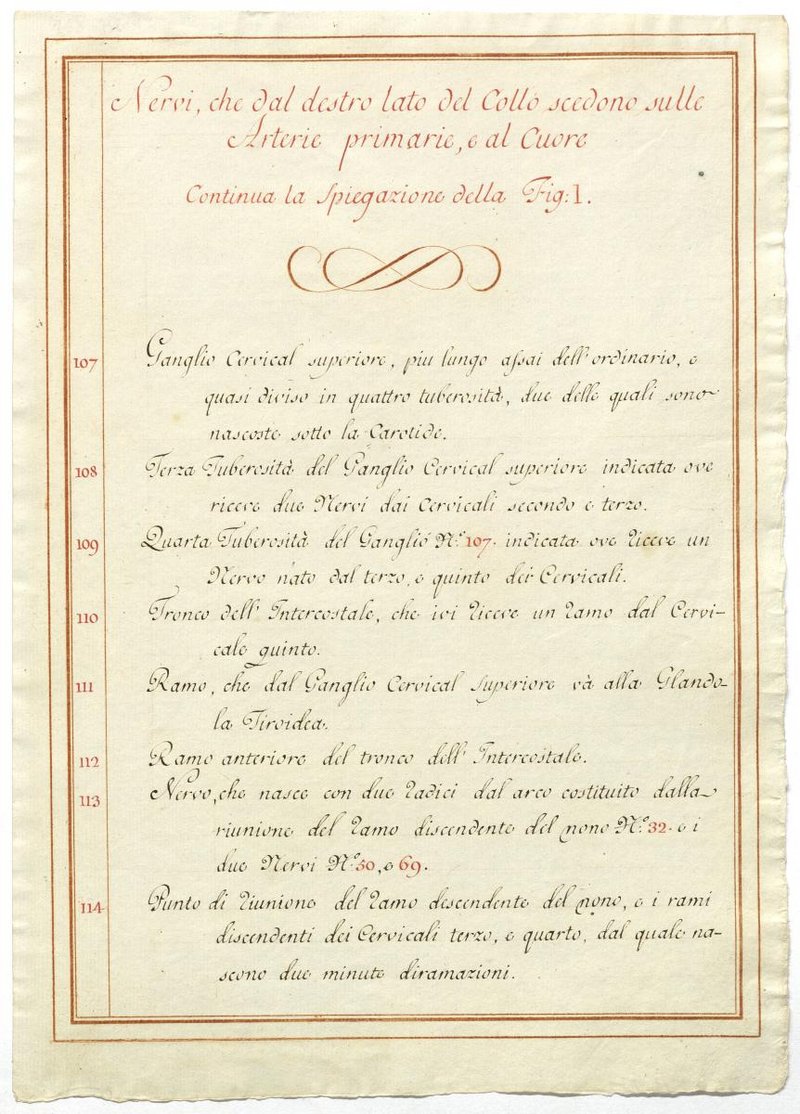 Nervi, che dal destro lato del Collo scedono sulle
Arterie primarie, e al Cuore
Continua la Spiegazione della Fig: I.
107 Ganglio Cervical superiore, piu lungo assai dell' ordinario, e
quasi diviso in quattro tuberosità, due delle quali sono
nascoste sotto la Carotide.
108 Terza Tuberosità del Ganglio Cervical superiore indicata ove
riceve due Nervi dai Cervicali secondo e terzo.
109 Quarta Tuberosità del Ganglio N.º 107. indicata ove riceve un
Nervo nato dal terzo, e quinto dei Cervicali.
110 Tronco dell' Intercostale, che ivi riceve un ramo dal Cervi-
cale quinto.
111 Ramo, che dal Ganglio Cervical Superiore và alla Glando-
la Tiroidea.
112 Ramo anteriore del tronco dell' Intercostale.
113 Nervo, che nasce con due radici dal arco costituito dalla
riunione del ramo discendente del nono N.º 32. e i
due Nervi N.º 50, e 69.
114 Punto di riunione del ramo descendente del nono, e i rami
discendenti dei Cervicali terzo, e quarto, dal quale na-
scono due minute diramazioni.